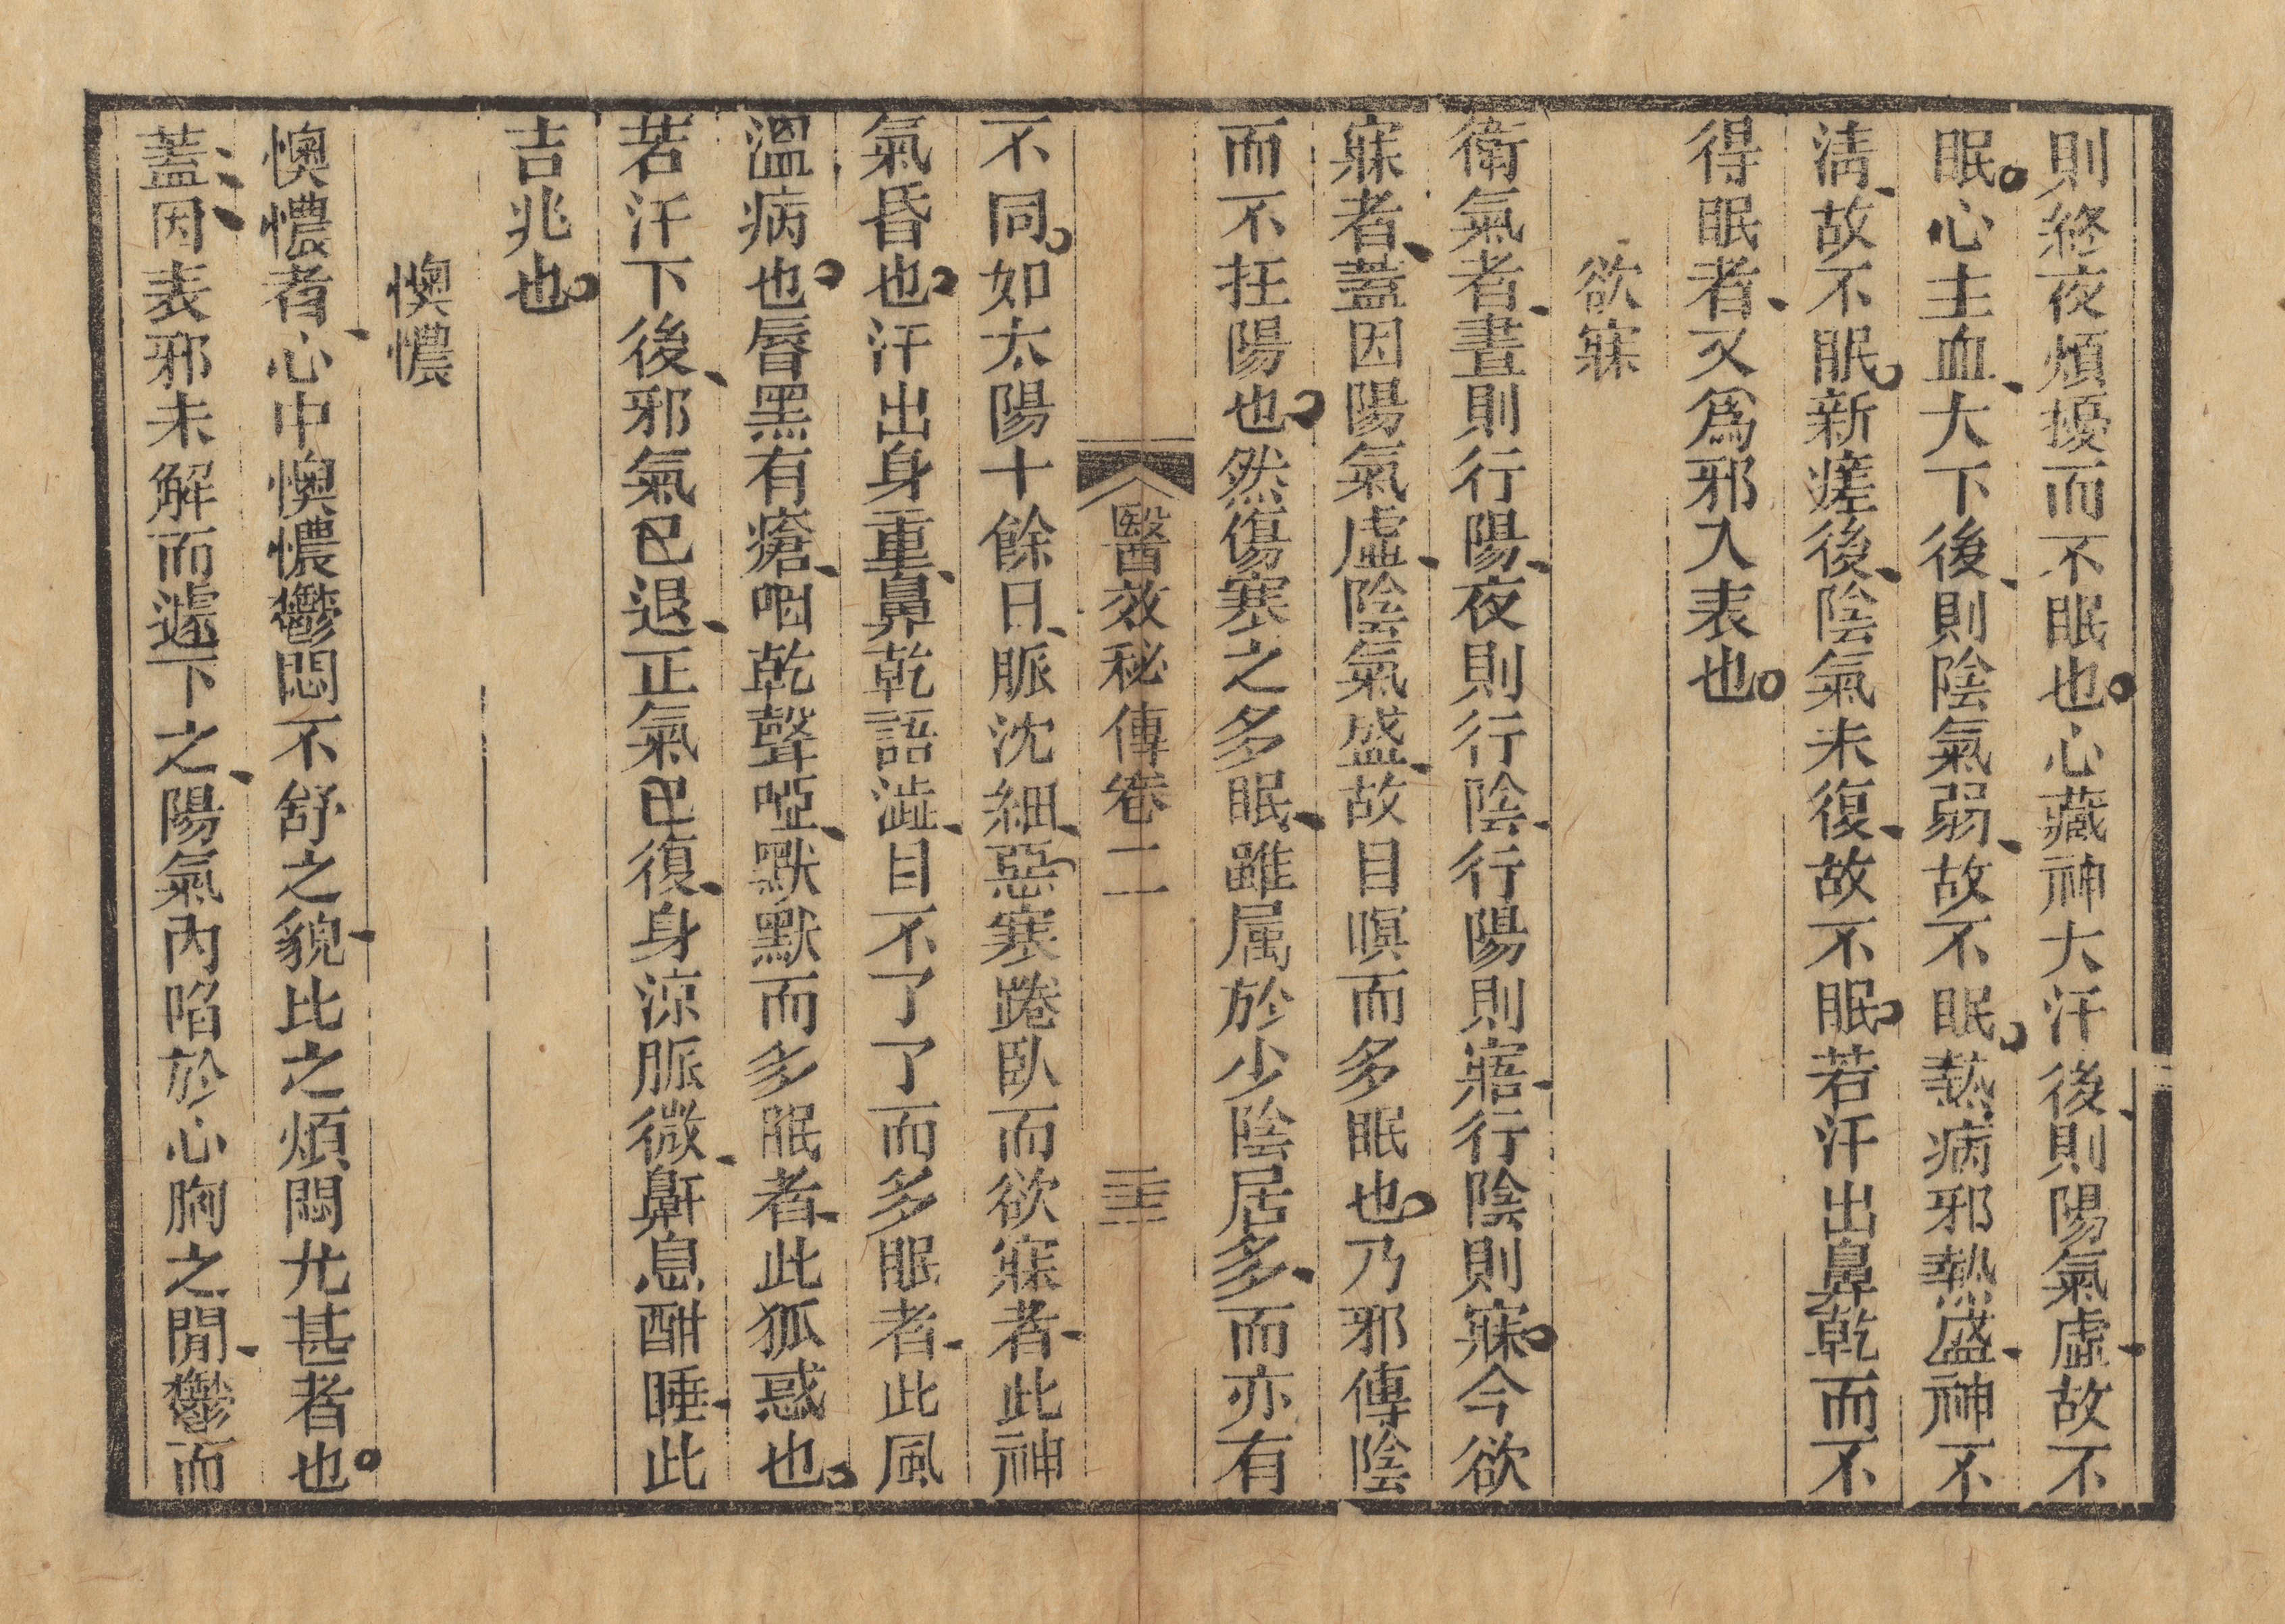 則終夜煩擾而不眠也。心藏神大汗後、則陽氣虛、故不
眠。心主血、大下後、則陰氣弱、故不眠。熱病邪熱盛、神不
清、故不眠。新瘥後、陰氣未復、故不眠。若汗出鼻乾而不
得眠者、又爲邪入表也。
欲寐
衛氣者、晝則行陽、夜則行陰、行陽則寤、行陰則寐。今欲
寐者、蓋因陽氣虛、陰氣盛、故目瞑而多眠也。乃邪傳陰
而不在陽也。然傷寒之多眠、雖属於少陰居多、而亦有
醫效秘傳卷二
不同。如太陽十餘日、脈沈細、惡寒踡臥而欲寐者、此神
氣昏也。汗出身重、鼻乾語澁、目不了了而多眠者、此風
溫病也。唇黑有瘡、咽乾聲啞、默默而多眠者、此狐惑也。
若汗下後、邪氣已退、正氣已復、身涼脈微、鼻息酣睡、此
吉兆也。
懊憹
懊憹者、心中懊憹鬱悶不舒之貌、比之煩悶尤甚者也。
蓋因表邪未解而遽下之、陽氣內陷於心胸之間、鬱而